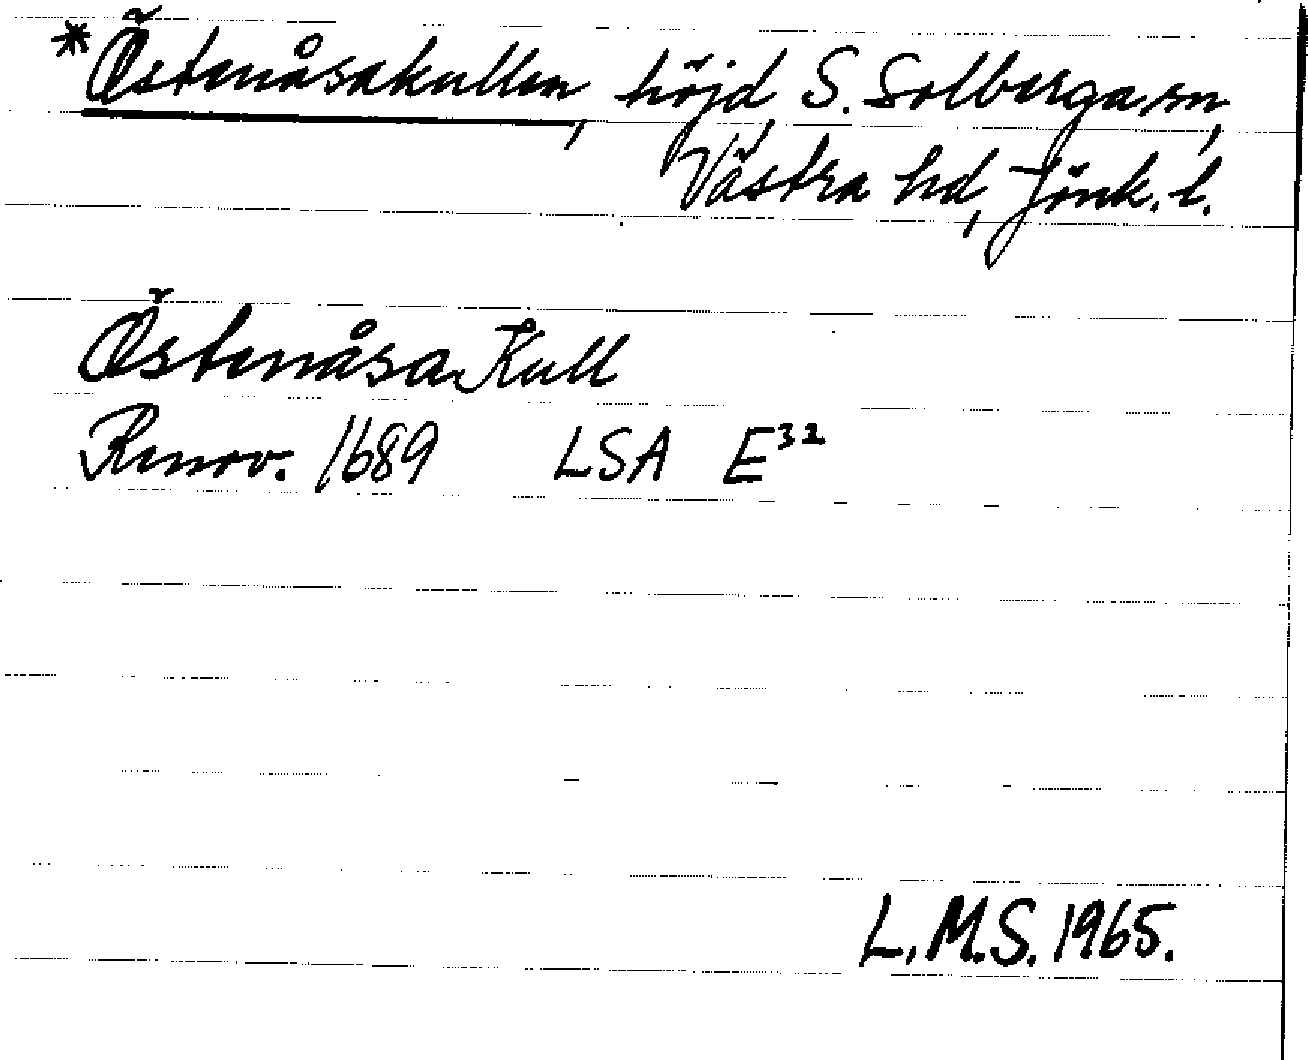 *Östenåsakullen, höjd, S. Solberga sn,
Västra hd, Jönk. l.
Östenåsa Kull
Renov. 1689 LSA E³²
L.M.S. 1965.